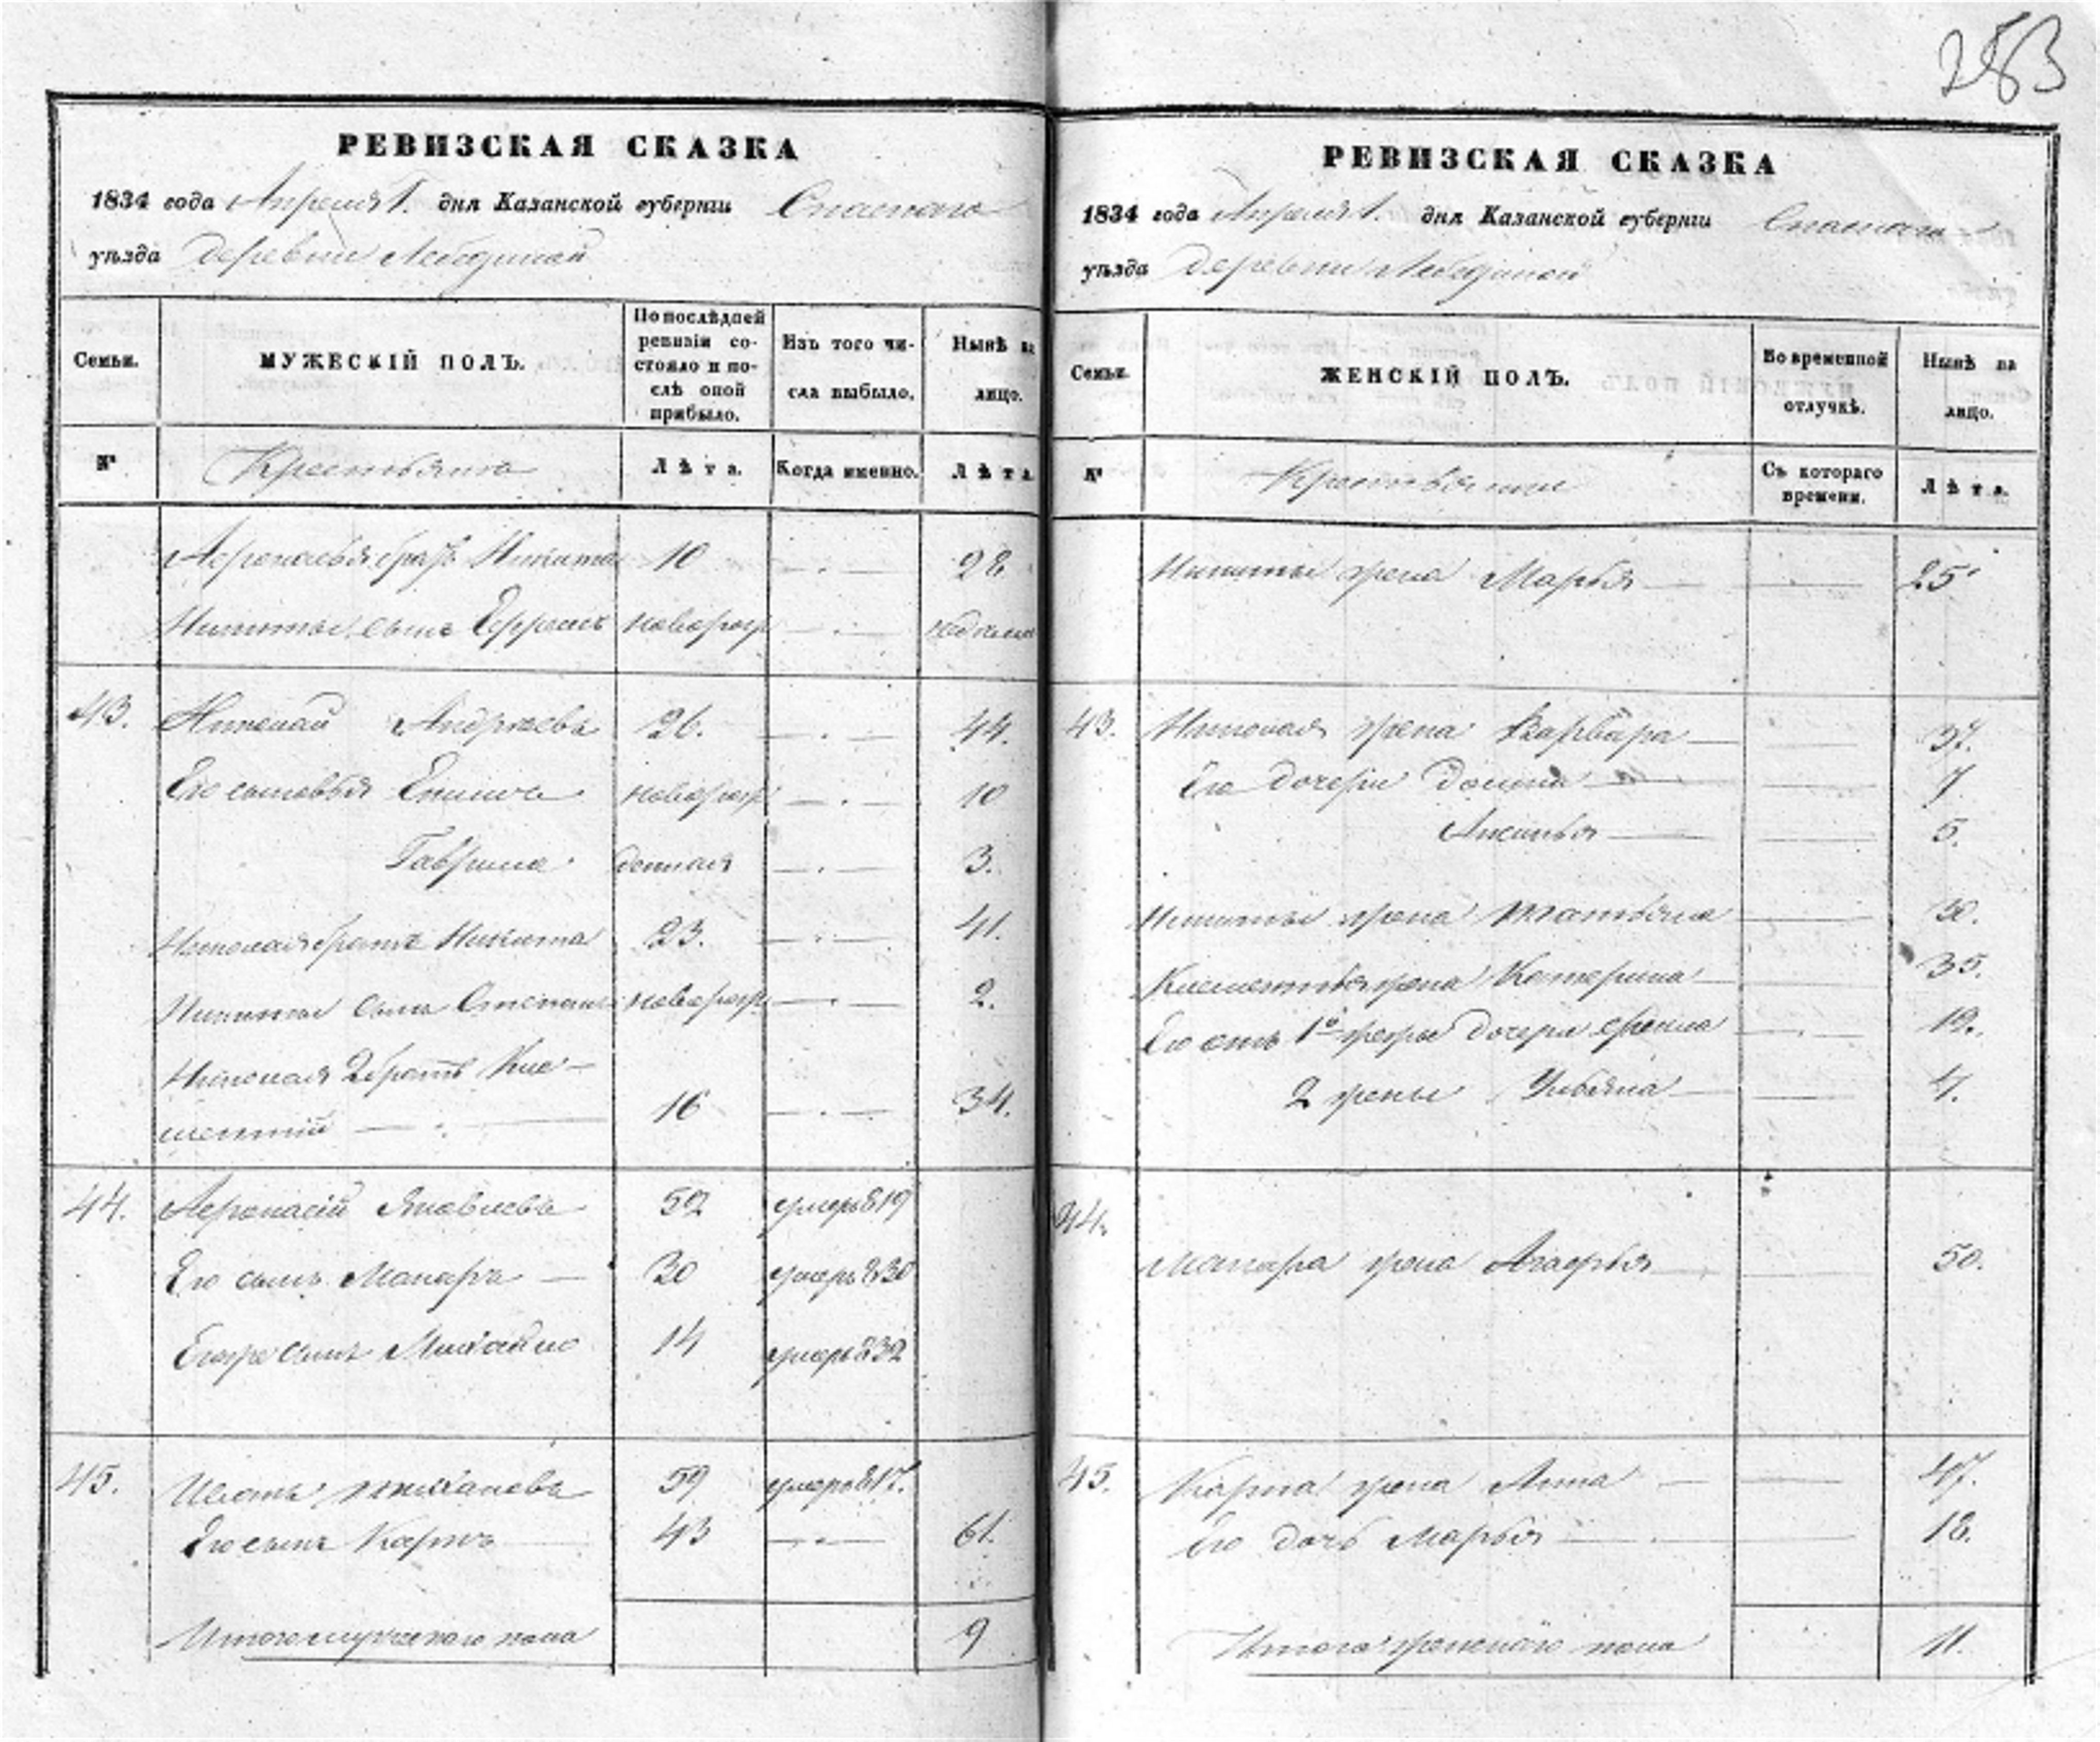 283
РЕВИЗСКАЯ СКАЗКА
1834 года Апреля 1. дня Казанской губерніи Спаскаго
уѣзда деревни Лебединой
Семьи. МУЖЕСКІЙ ПОЛЪ. По послѣдней ревизіи состояло и послѣ оной прибыло. Изъ того числа выбыло. Нынѣ на лицо.
№ Крестьяна Лѣта. Когда именно. Лѣта.
Афонасья братъ Никита 10 28
Никиты сынъ новорож
43. Николай Андреевъ 26. 44.
Его сыновья новорож 10
Гаврила 3.
Николая братъ Никита 23. 41.
Никиты сынъ Степанъ новорож 2.
Николая 2 братъ Кле-
ментій 16 34.
44. Афонасій Яковлевъ 52 умеръ 819
Его сынъ Макаръ 30 умеръ 830
сынъ Михайло 14 умеръ 832
45. 59 умеръ 817.
Его сынъ Карпъ 43 61.
Итого мужескаго пола 9
РЕВИЗСКАЯ СКАЗКА
1834 года Апреля 1. дня Казанской губерніи Спаскаго
уѣзда деревни Лебединой
Семьи. ЖЕНСКІЙ ПОЛЪ. Во временной отлучкѣ. Нынѣ на лицо.
№ Съ котораго времени. Лѣта.
Никиты жена Марья 25
43. Николая жена Варвара 37.
Его дочери 7
Аксинья 5.
Никиты жена Татьяна 30.
Клементья жена Катерина 35.
Его отъ 1й жены дочери 12.
2 жены Ульяна 4.
44.
Макара жена Агафья 50.
45. Карпа жена Анна 47.
Его дочь Марья 18.
Итого женскаго пола 11.